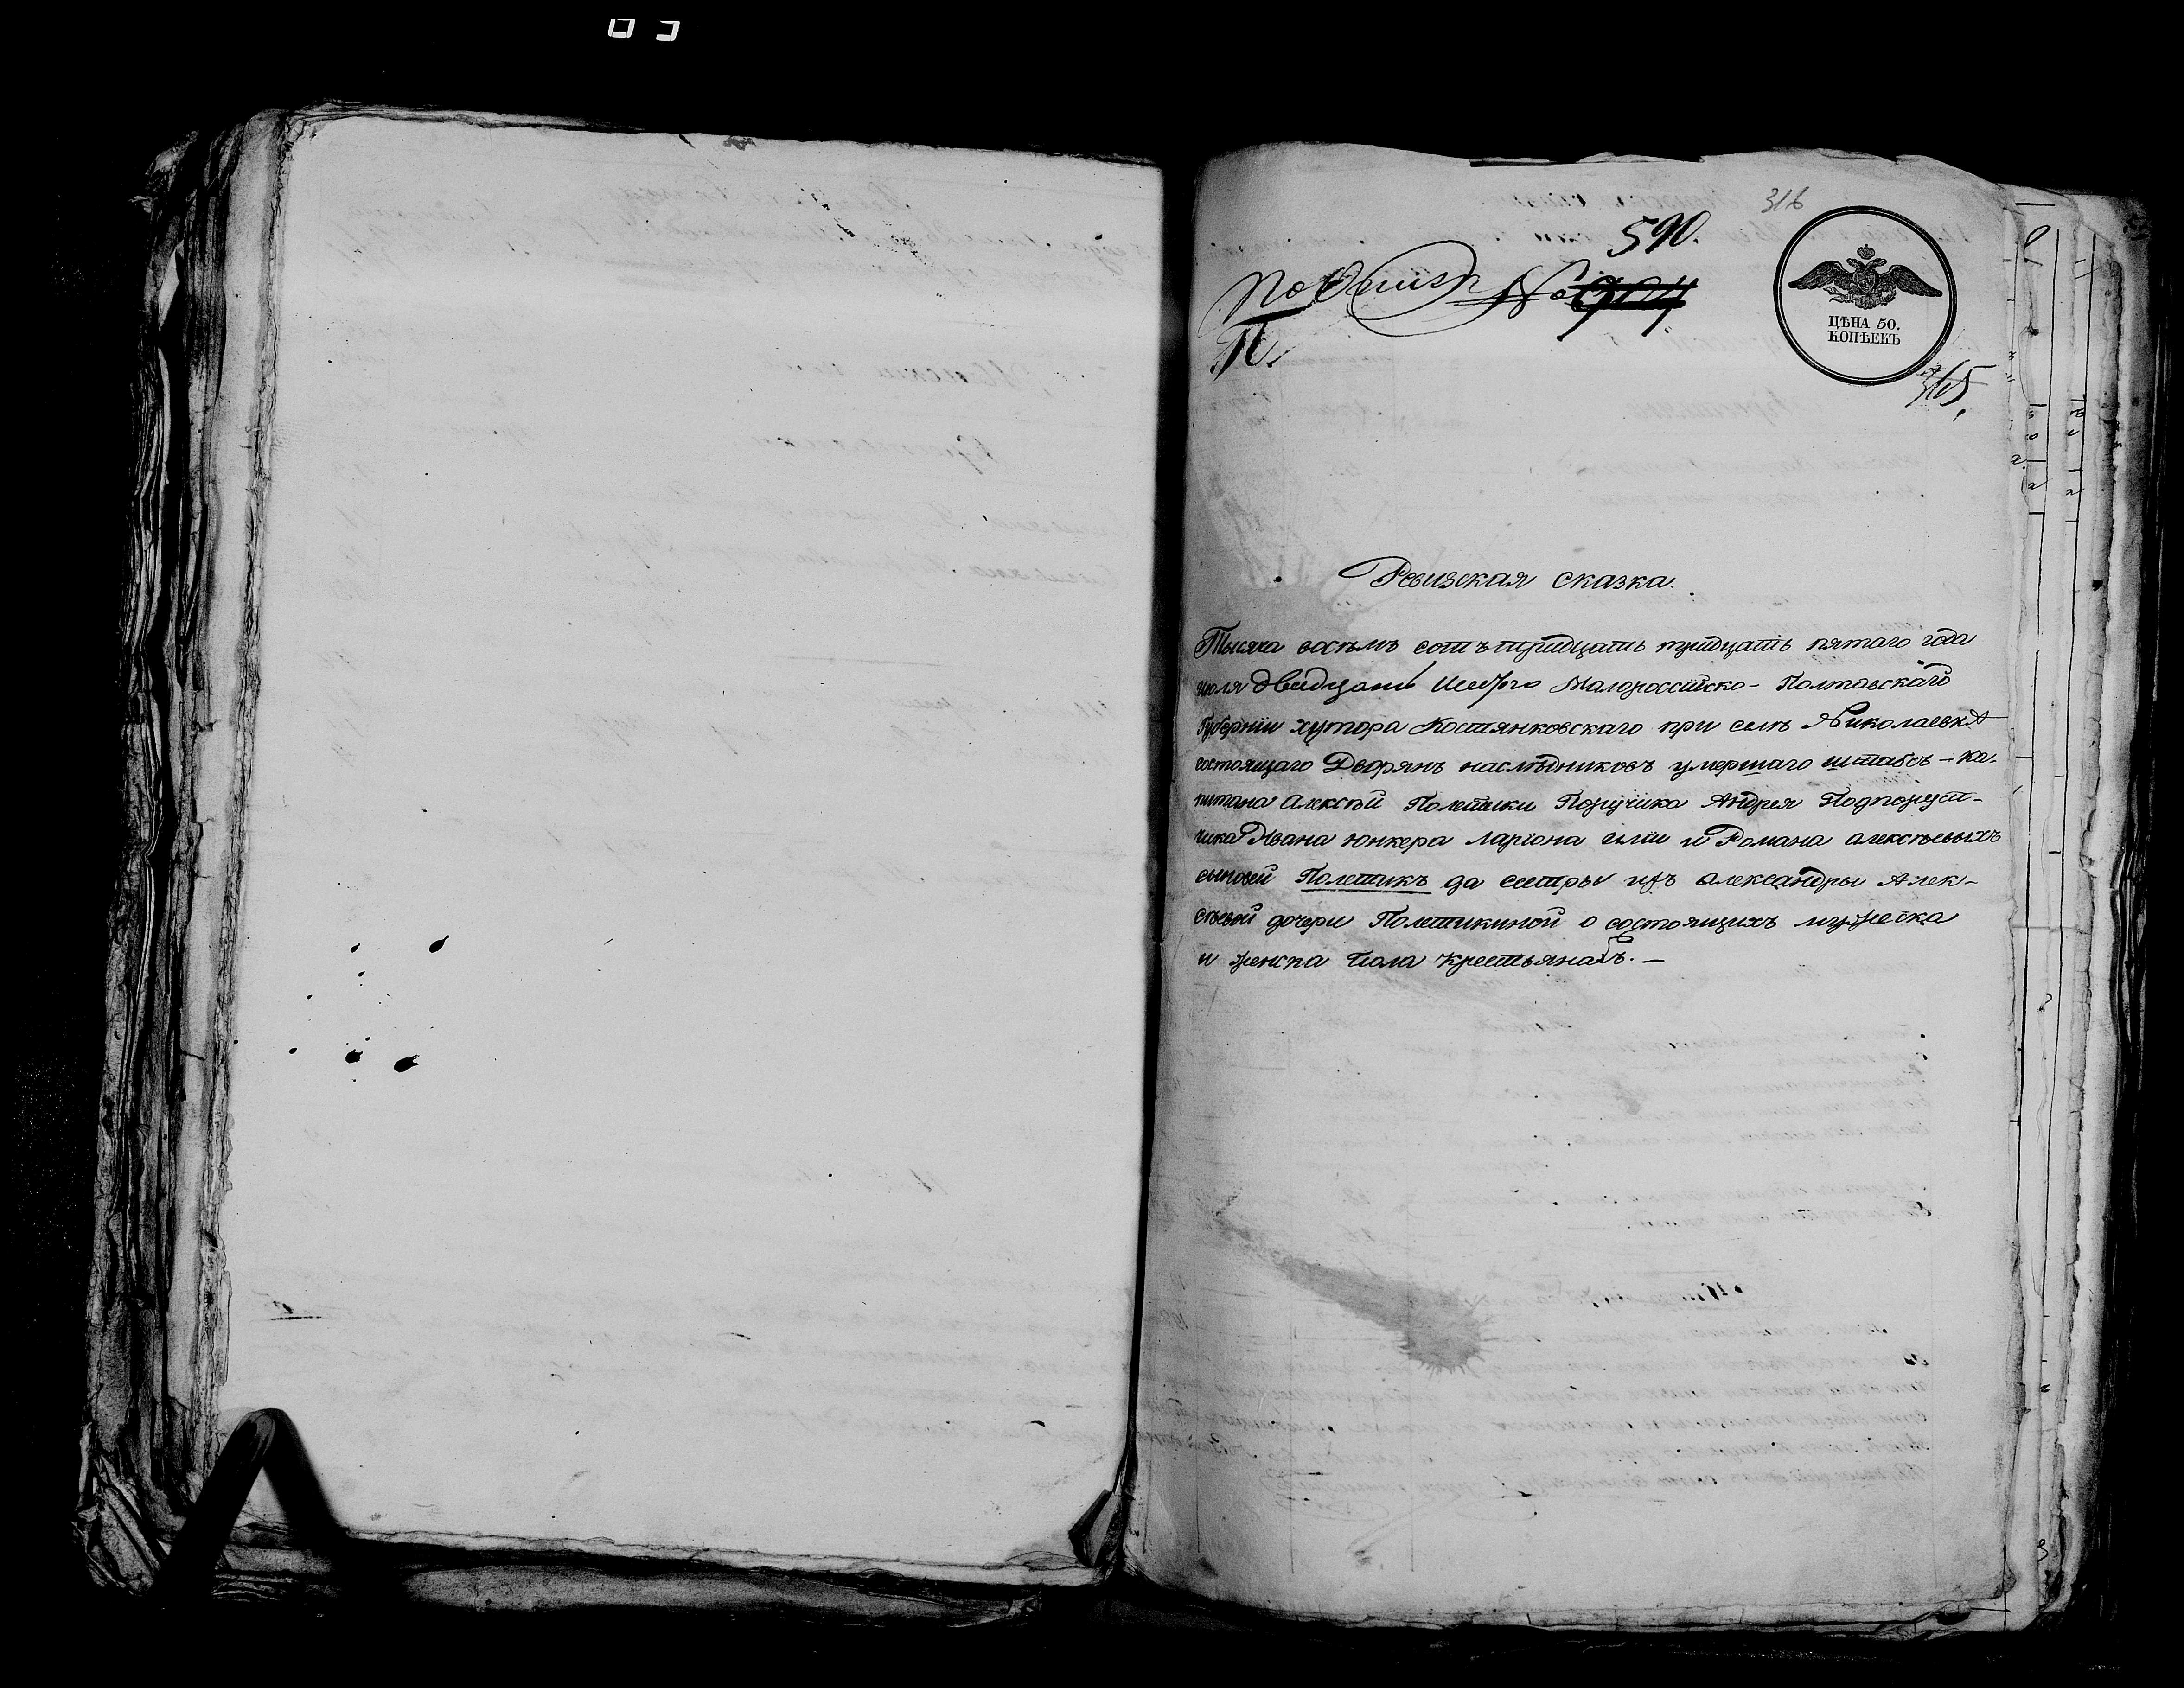 316
590.
По Описи № 904
П.
ЦѢНА 50.
КОПѢЕКЪ
Ревизская сказка.
Тысяча восемь сотъ тридцать тридцать пятаго года
июля двадцать Малороссійско-Полтавской
Губерніи хутора Костянковскаго при селѣ Николаевкѣ
состоящаго Дворянъ наслѣдниковъ умершаго штабсъ-ка-
питана Алексѣй Полетики Поручика Андрея Подпоручи-
чика Ивана юнкера Ларіона иліи и Романа алексѣевыхъ
сыновей Полетикъ да сестры ихъ александры Алек-
сѣевой дочери Полетикиной о состоящихъ мужеска
и женска пола крестьянахъ.—